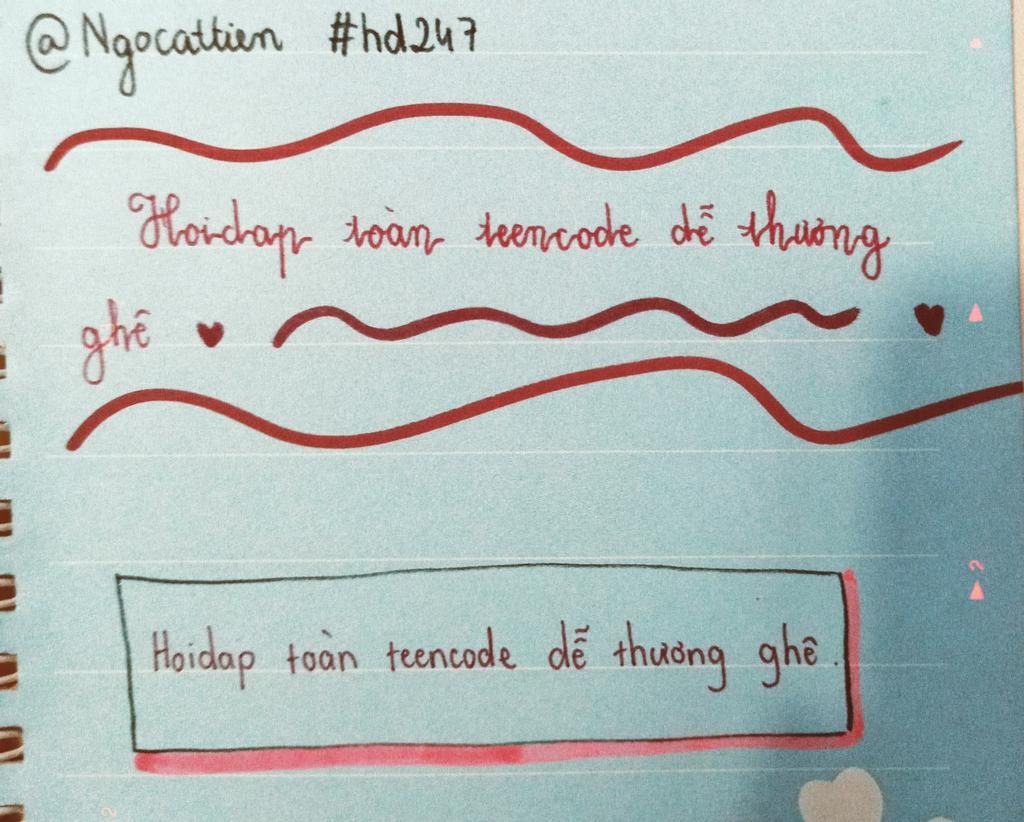 @Ngocattien #hd247
Hoidap toàn teencode dễ thương
ghê
Hoidap toàn teencode dễ thương ghê.